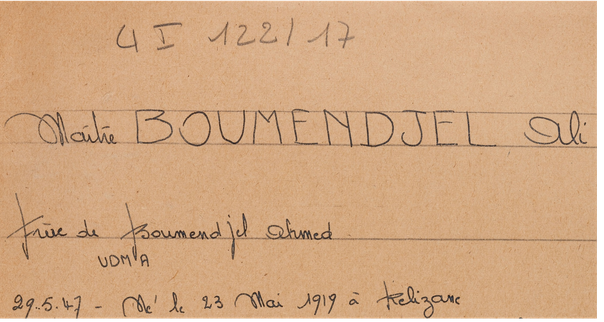 4 I 122/17
Maître BOUMENDJEL Ali
frère de Boumendjel Ahmed
UDMA
29.5.47 - Né le 23 Mai 1919 à Relizane